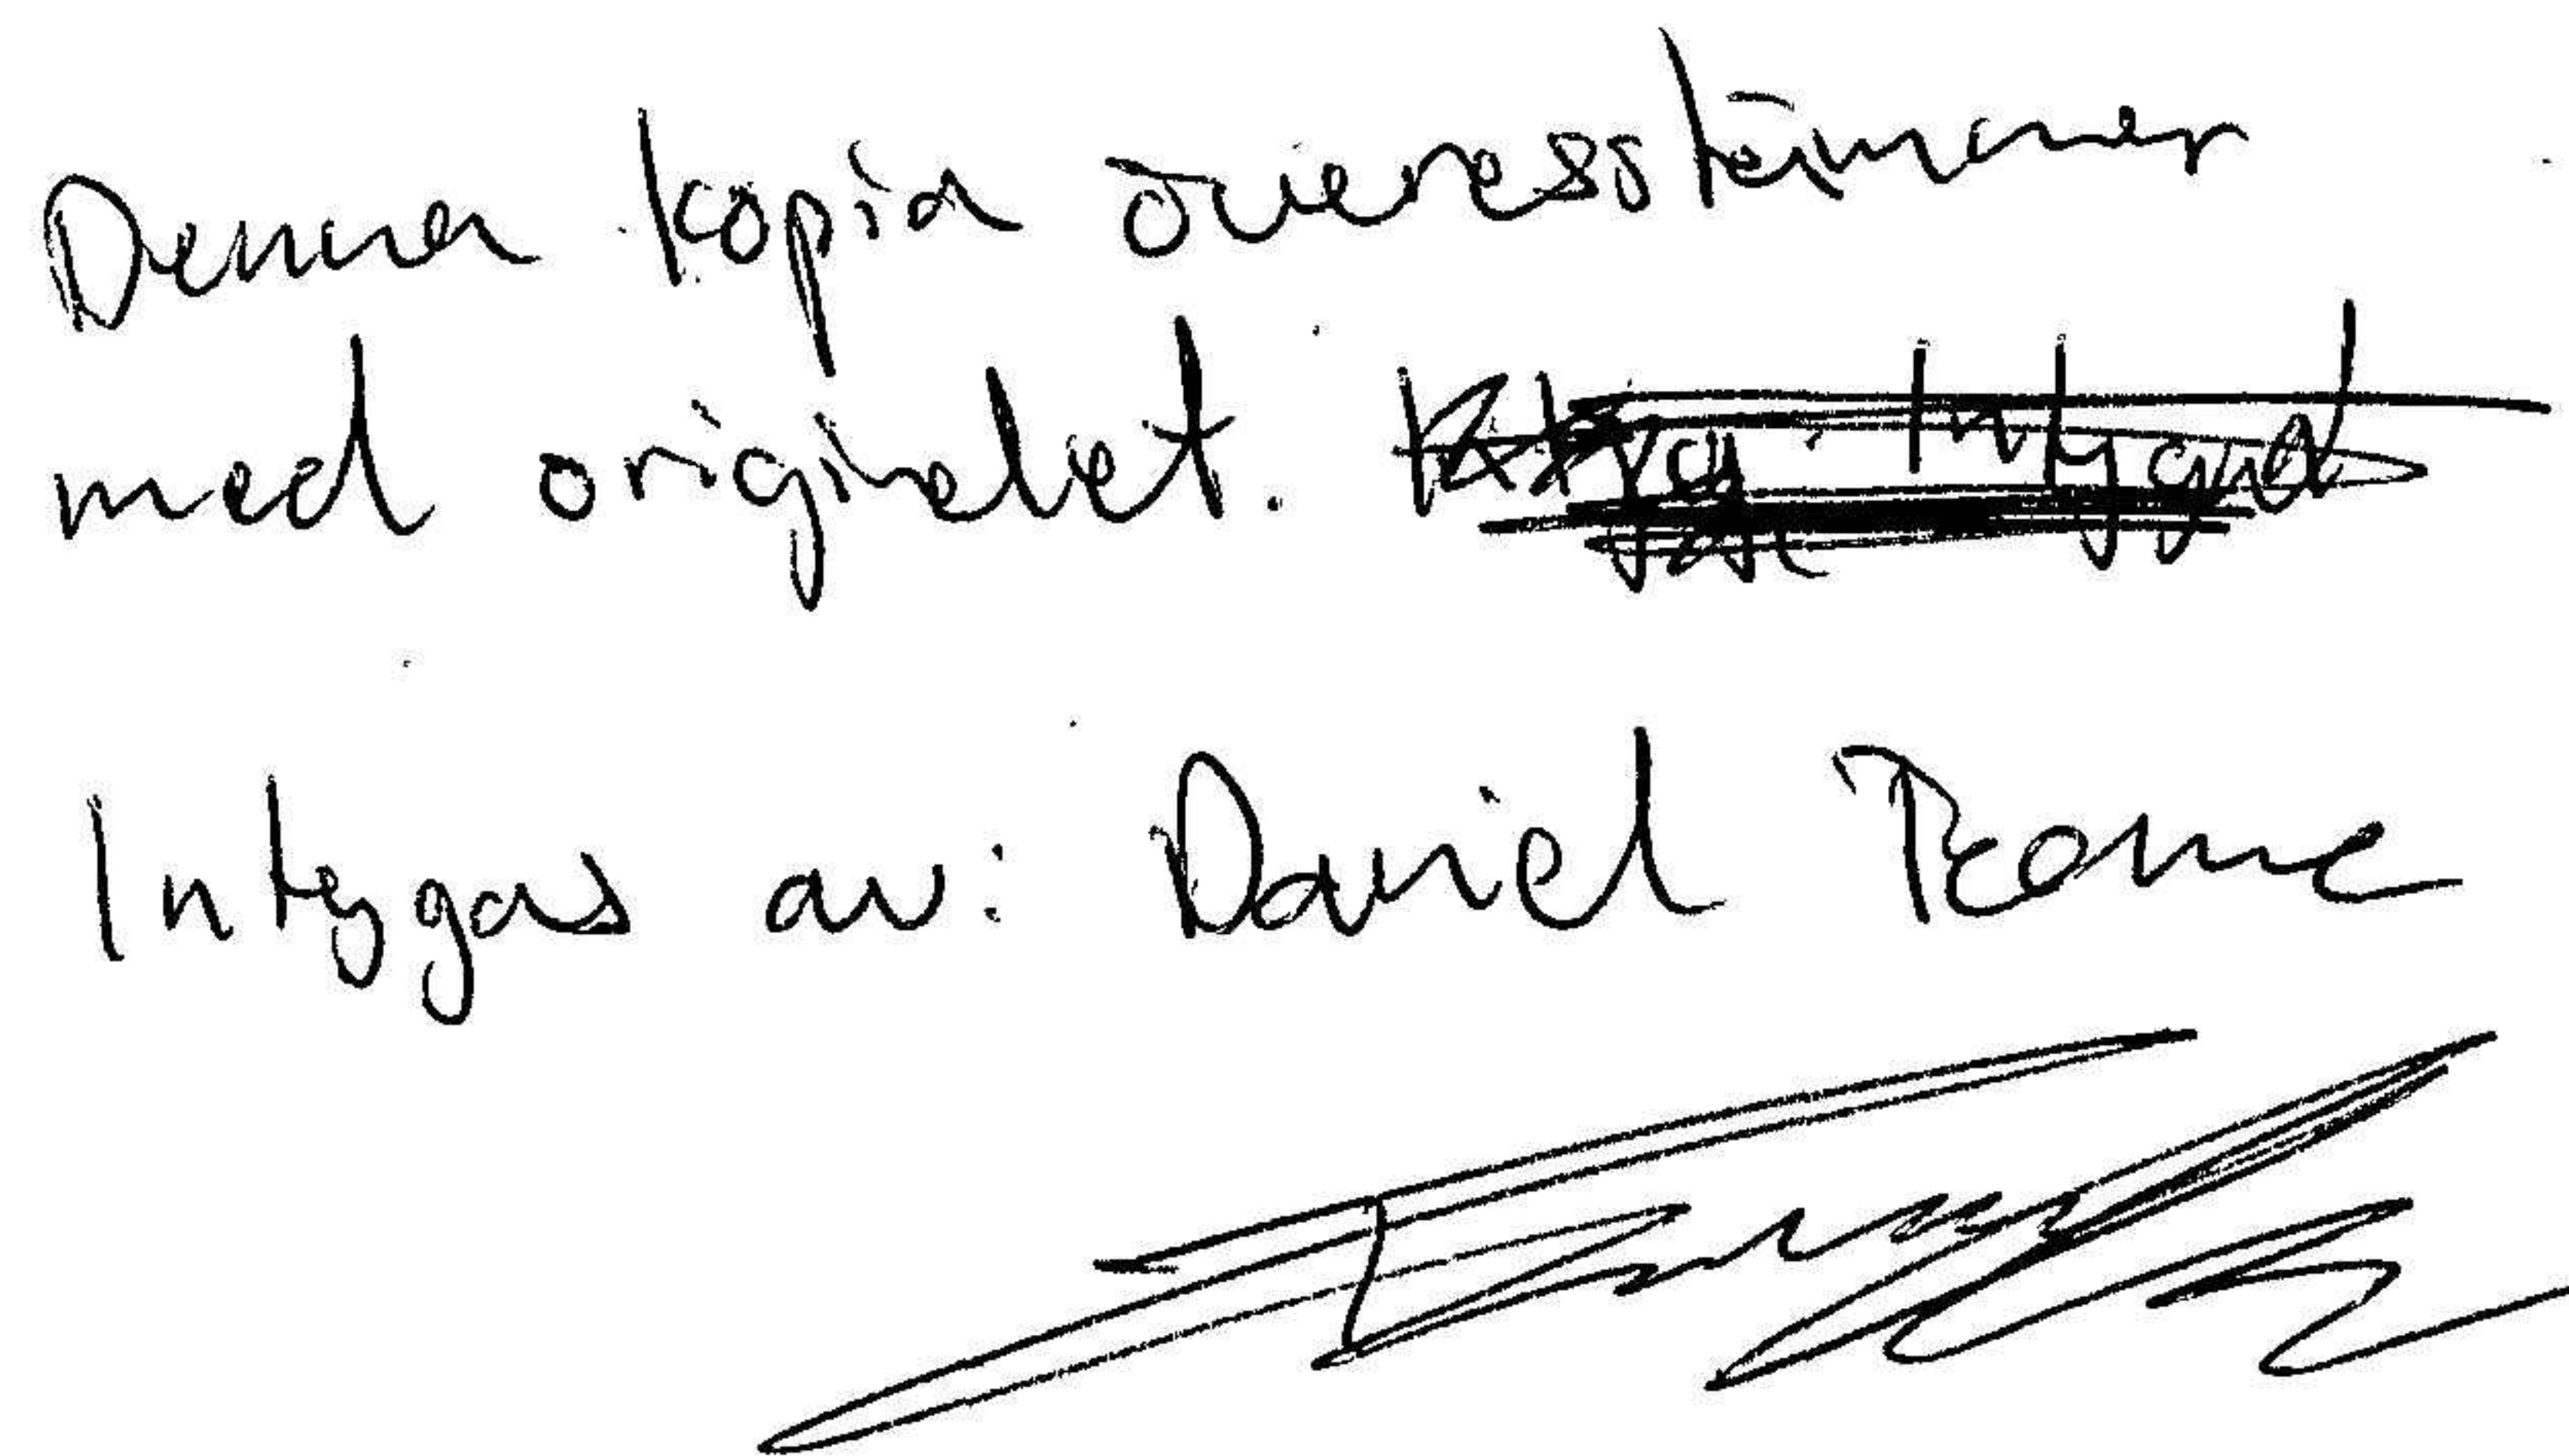 Denna kopia överesstämmer
med originalet.
Intygas av: Daniel